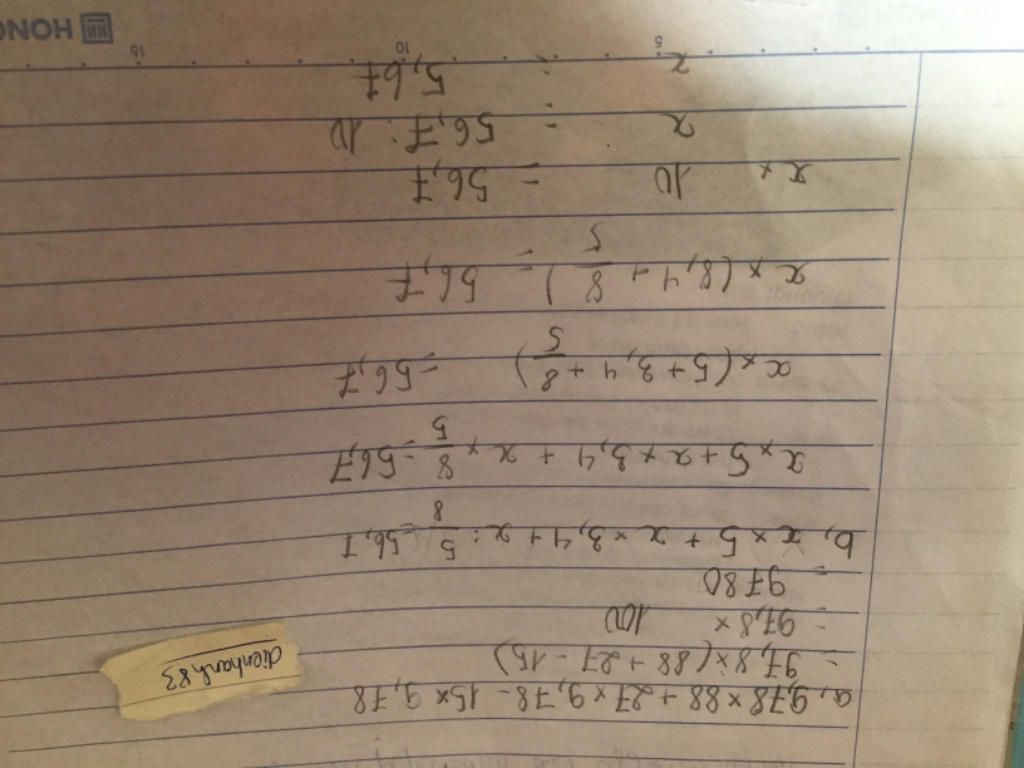 a, 9,78 × 88 + 27 × 9,78 - 15 × 9,78
= 97,8 × (88 + 27 - 15)
dienhanh83
= 97,8 × 100
= 9780
b, x × 5 + x × 3,4 + x : 5/8 = 56,7
x × 5 + x × 3,4 + x × 8/5 = 56,7
x × (5 + 3,4 + 8/5) = 56,7
x × (8,4 + 8/5) = 56,7
x × 10 = 56,7
x = 56,7 : 10
x = 5,67
5 10 15
HONG